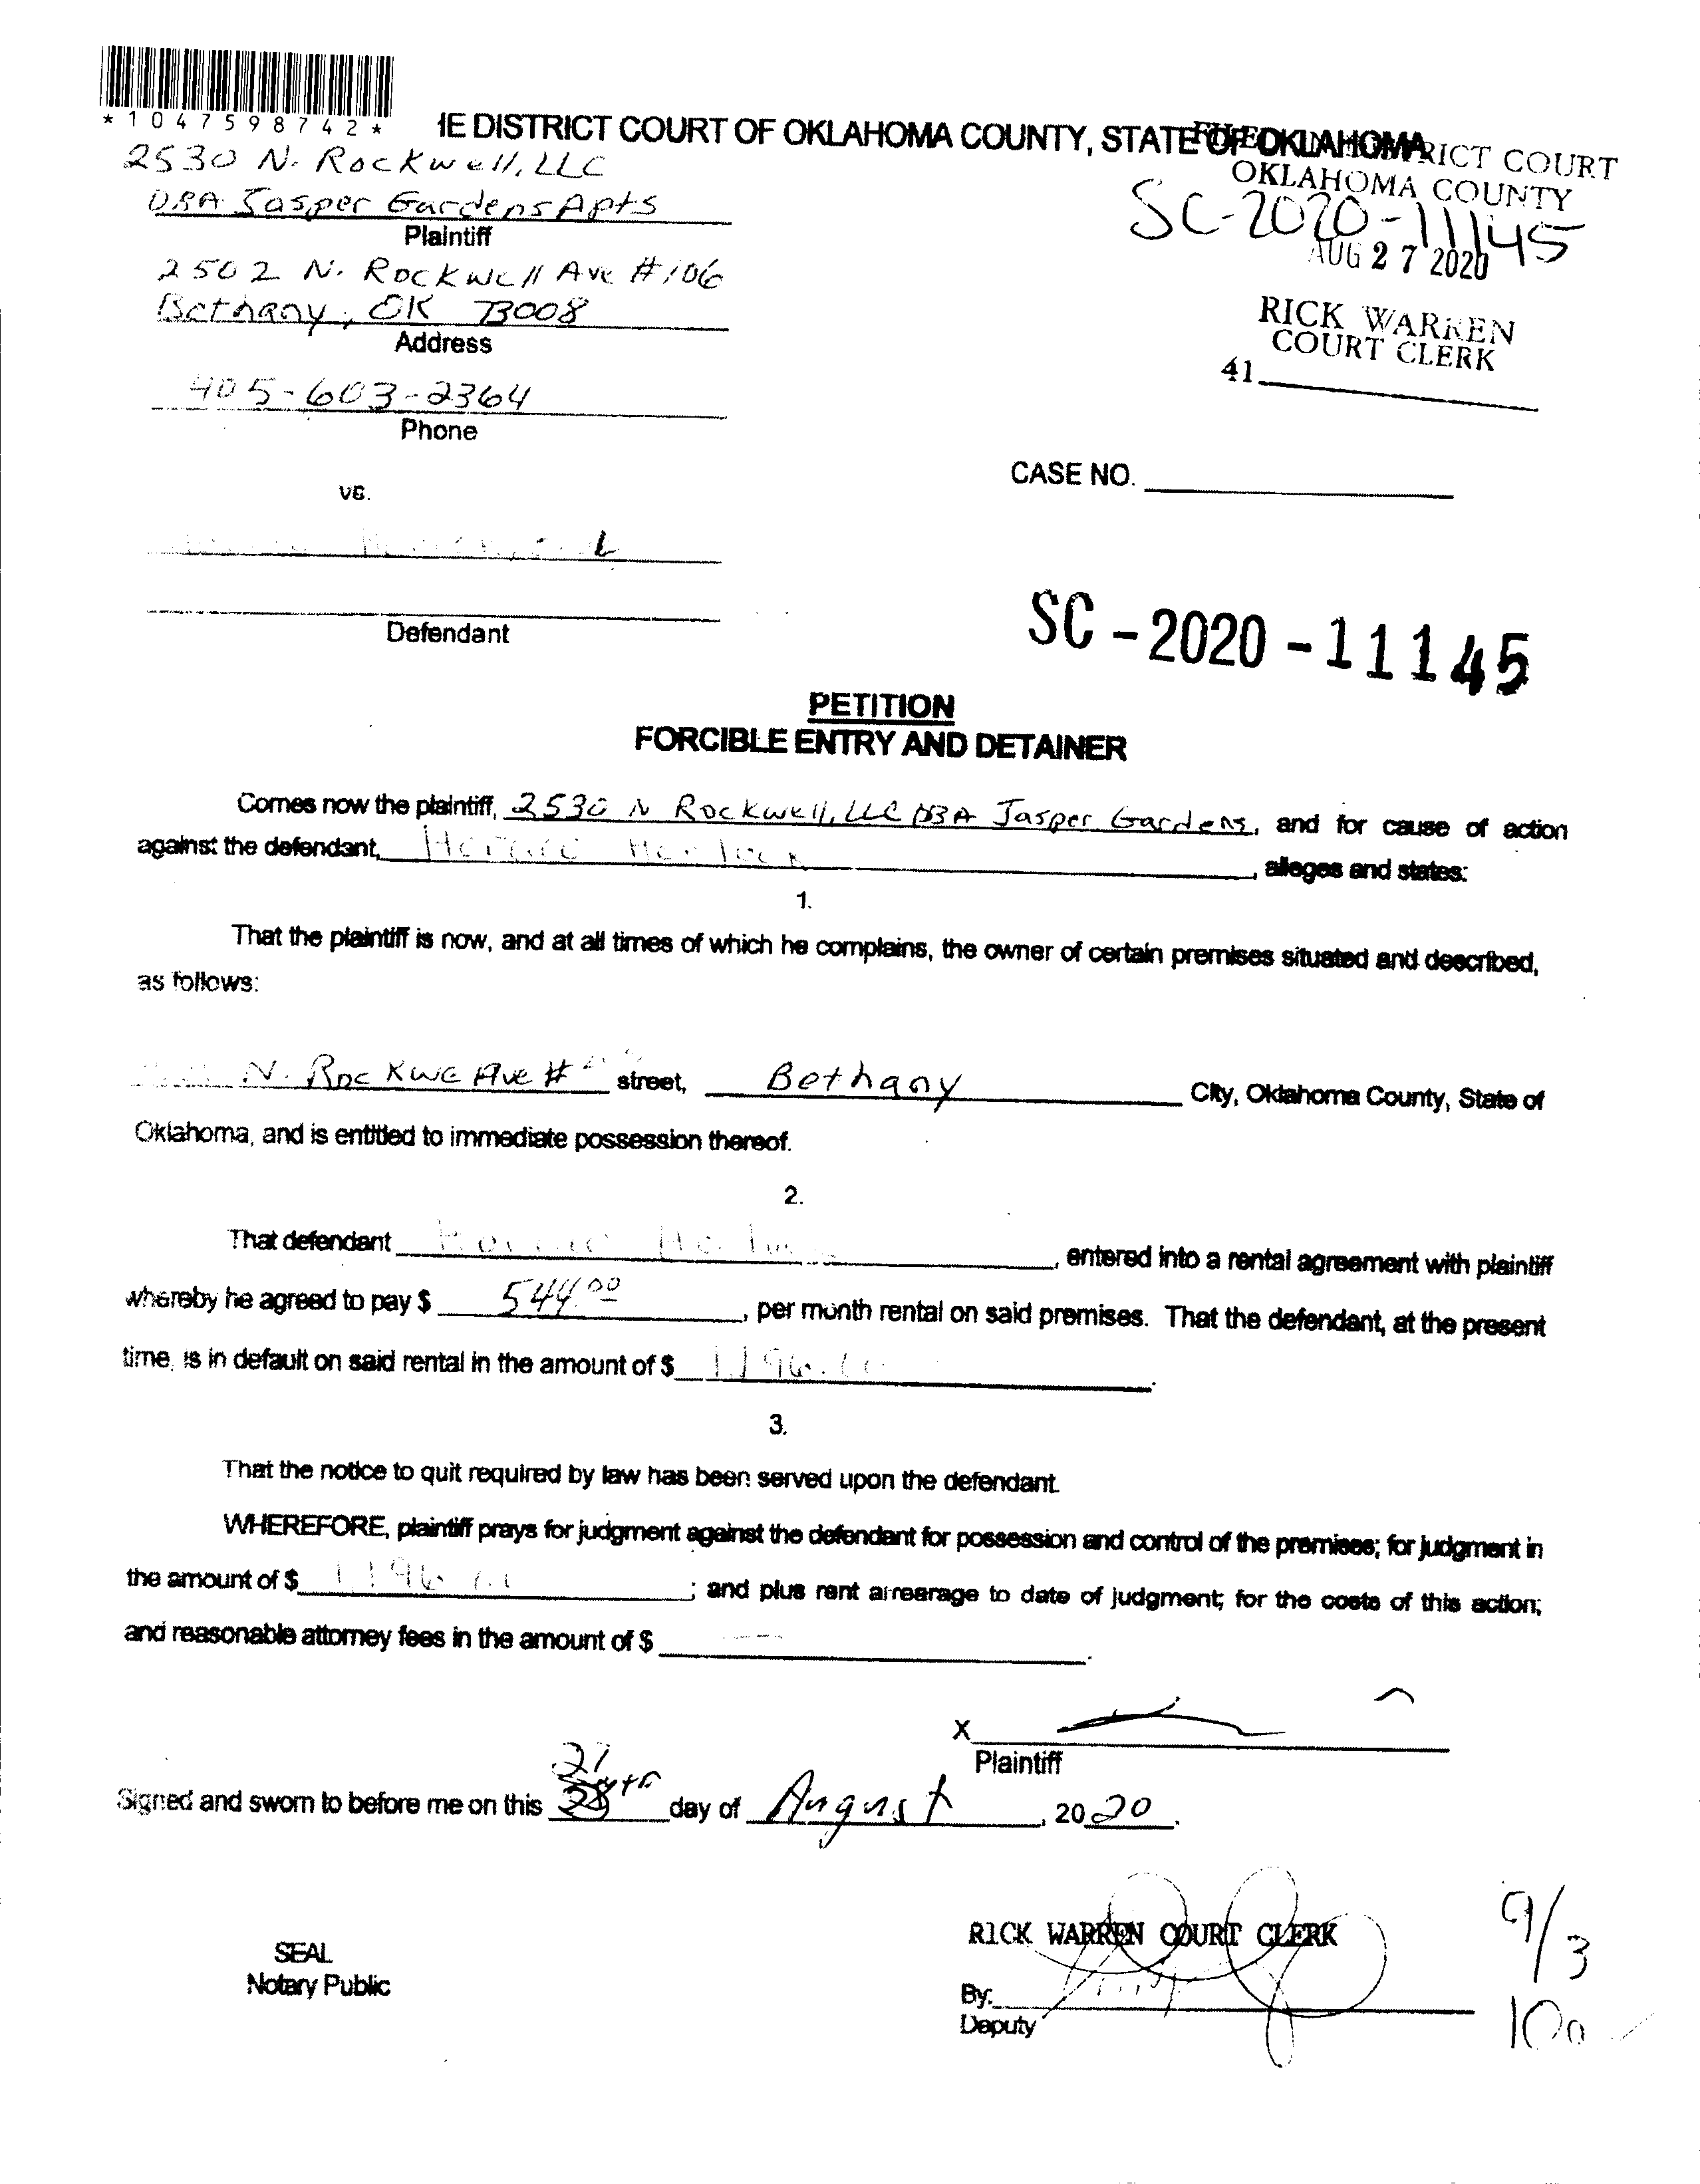 *1047598742*
IE DISTRICT COURT OF OKLAHOMA COUNTY, STATE OF OKLAHOMA
RICT COURT
OKLAHOMA COUNTY
SC-2020-11145
AUG 27 2020
RICK WARREN
COURT CLERK
41
2530 N. Rockwell, LLC
DBA Jasper Gardens Apts
Plaintiff
2502 N. Rockwell Ave #106
Bethany, OK 73008
Address
405-603-2364
Phone
CASE NO.
vs.
Defendant
SC-2020-11145
PETITION
FORCIBLE ENTRY AND DETAINER
Comes now the plaintiff, 2530 N Rockwell, LLC DBA Jasper Gardens, and for cause of action
against the defendant, , alleges and states:
1.
That the plaintiff is now, and at all times of which he complains, the owner of certain premises situated and described,
as follows:
N. Rockwe Ave # street, Bethany City, Oklahoma County, State of
Oklahoma, and is entitled to immediate possession thereof.
2.
That defendant , entered into a rental agreement with plaintiff
whereby he agreed to pay $ 544.00, per month rental on said premises. That the defendant, at the present
time, is in default on said rental in the amount of $ .
3.
That the notice to quit required by law has been served upon the defendant.
WHEREFORE, plaintiff prays for judgment against the defendant for possession and control of the premises; for judgment in
the amount of $ ; and plus rent arrearage to date of judgment; for the costs of this action;
and reasonable attorney fees in the amount of $ — .
X
Plaintiff
Signed and sworn to before me on this 27 day of August, 2020.
RICK WARREN COURT CLERK
SEAL
Notary Public
By:
Deputy
9/3